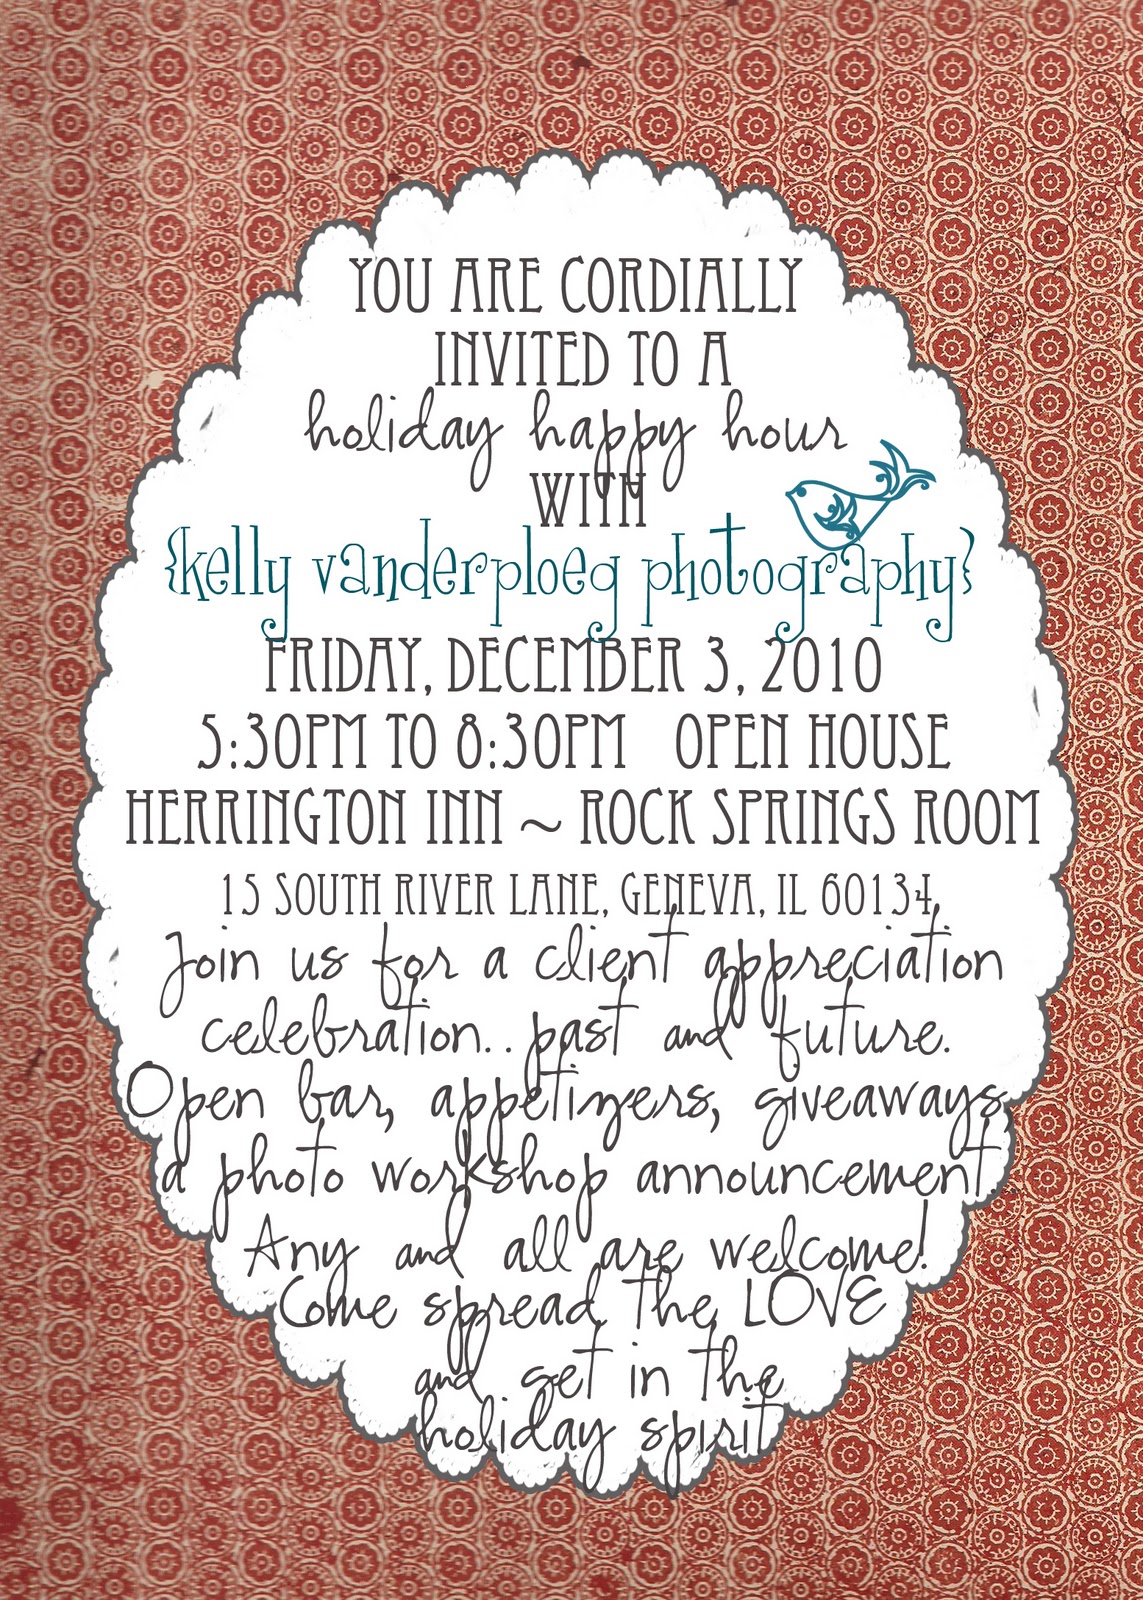 YOU ARE CORDIALLY
INVITED TO A
holiday happy hour
WITH
{kelly vanderploeg photography}
FRIDAY, DECEMBER 3, 2010
5:30PM TO 8:30PM OPEN HOUSE
HERRINGTON INN ~ ROCK SPRINGS ROOM
15 SOUTH RIVER LANE, GENEVA, IL 60134
Join us for a client appreciation
celebration..past and future.
Open bar, appetizers, giveaways
a photo workshop announcement.
Any and all are welcome!
Come spread the LOVE
and get in the
holiday spirit.